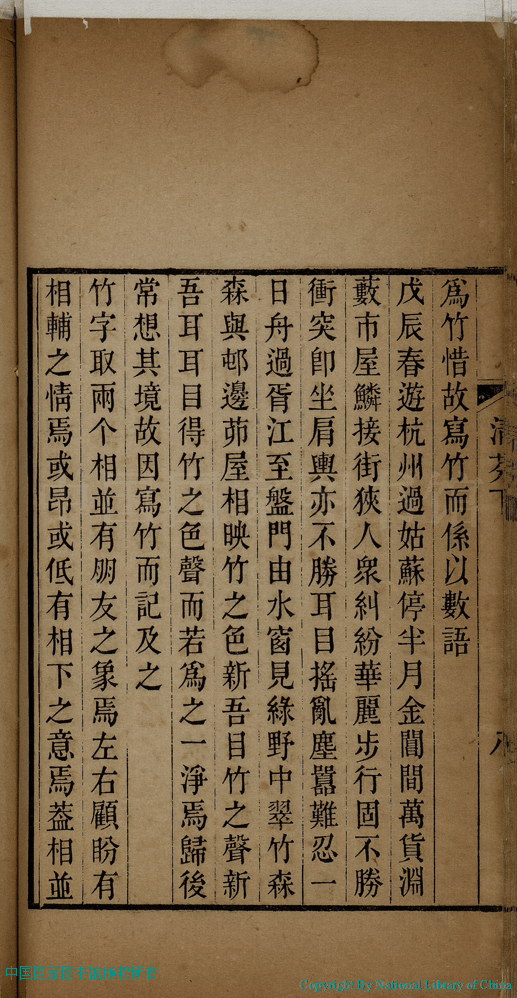 爲竹惜故寫竹而係以數語
戊辰春遊杭州過姑蘇停半月金閶間萬貨淵
藪市屋鱗接街狹人衆糾紛華麗步行固不勝
衝突卽坐肩輿亦不勝耳目搖亂塵囂難忍一
日舟過胥江至盤門由水窗見綠野中翠竹森
森與邨邊茆屋相映竹之色新吾目竹之聲新
吾耳耳目得竹之色聲而若爲之一淨焉歸後
常想其境故因寫竹而記及之
竹字取兩个相並有朋友之象焉左右顧盼有
相輔之情焉或昂或低有相下之意焉蓋相並
Copyright By National Library of China